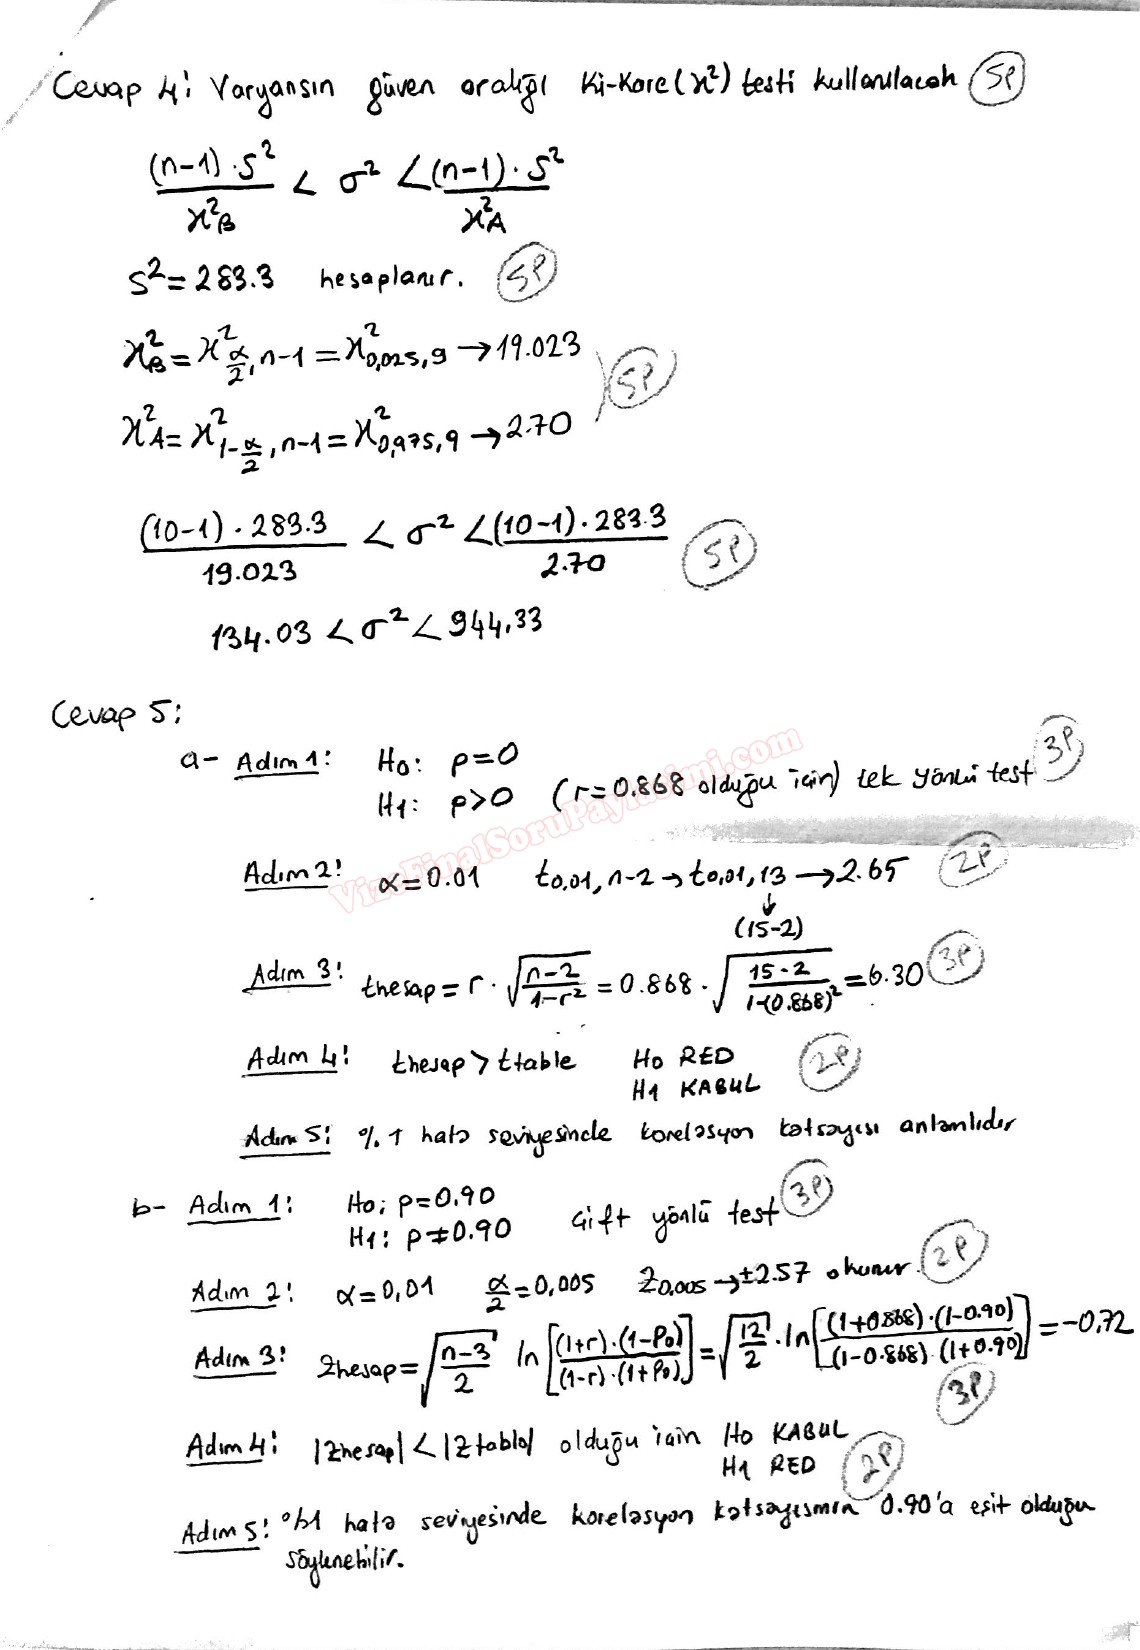 Cevap 4: Varyansın güven aralığı Ki-Kare(χ²) testi kullanılacak 5P
(n-1)·S² / χ²B < σ² < (n-1)·S² / χ²A
S² = 283.3 hesaplanır. 5P
χ²B = χ² α/2, n-1 = χ² 0,025, 9 → 19.023
χ²A = χ² 1-α/2, n-1 = χ² 0,975, 9 → 2.70 5P
(10-1)·283.3 / 19.023 < σ² < (10-1)·283.3 / 2.70 5P
134.03 < σ² < 944.33
Cevap 5:
a- Adım 1: H0: ρ=0
H1: ρ>0 (r=0.868 olduğu için) tek yönlü test 3P
VizeFinalSoruPaylasimi.com
Adım 2: α=0.01 t0.01, n-2 → t0,01, 13 → 2.65 2P
↓
(15-2)
Adım 3: thesap = r · √((n-2)/(1-r²)) = 0.868 · √((15-2)/(1-(0.868)²)) = 6.30 3P
Adım 4: thesap > ttable H0 RED 2P
H1 KABUL
Adım 5: %1 hata seviyesinde korelasyon katsayısı anlamlıdır
b- Adım 1: H0: ρ=0.90
H1: ρ≠0.90 Çift yönlü test 3P
Adım 2: α=0,01 α/2=0,005 Z0,005 → ±2.57 okunur. 2P
Adım 3: Zhesap = √(n-3)/2 ln[(1+r)·(1-ρ0) / (1-r)·(1+ρ0)] = √12/2 · ln[(1+0.868)·(1-0.90) / (1-0.868)·(1+0.90)] = -0,72
3P
Adım 4: |Zhesap| < |Ztablo| olduğu için H0 KABUL
H1 RED 2P
Adım 5: %1 hata seviyesinde korelasyon katsayısının 0.90'a eşit olduğu
söylenebilir.